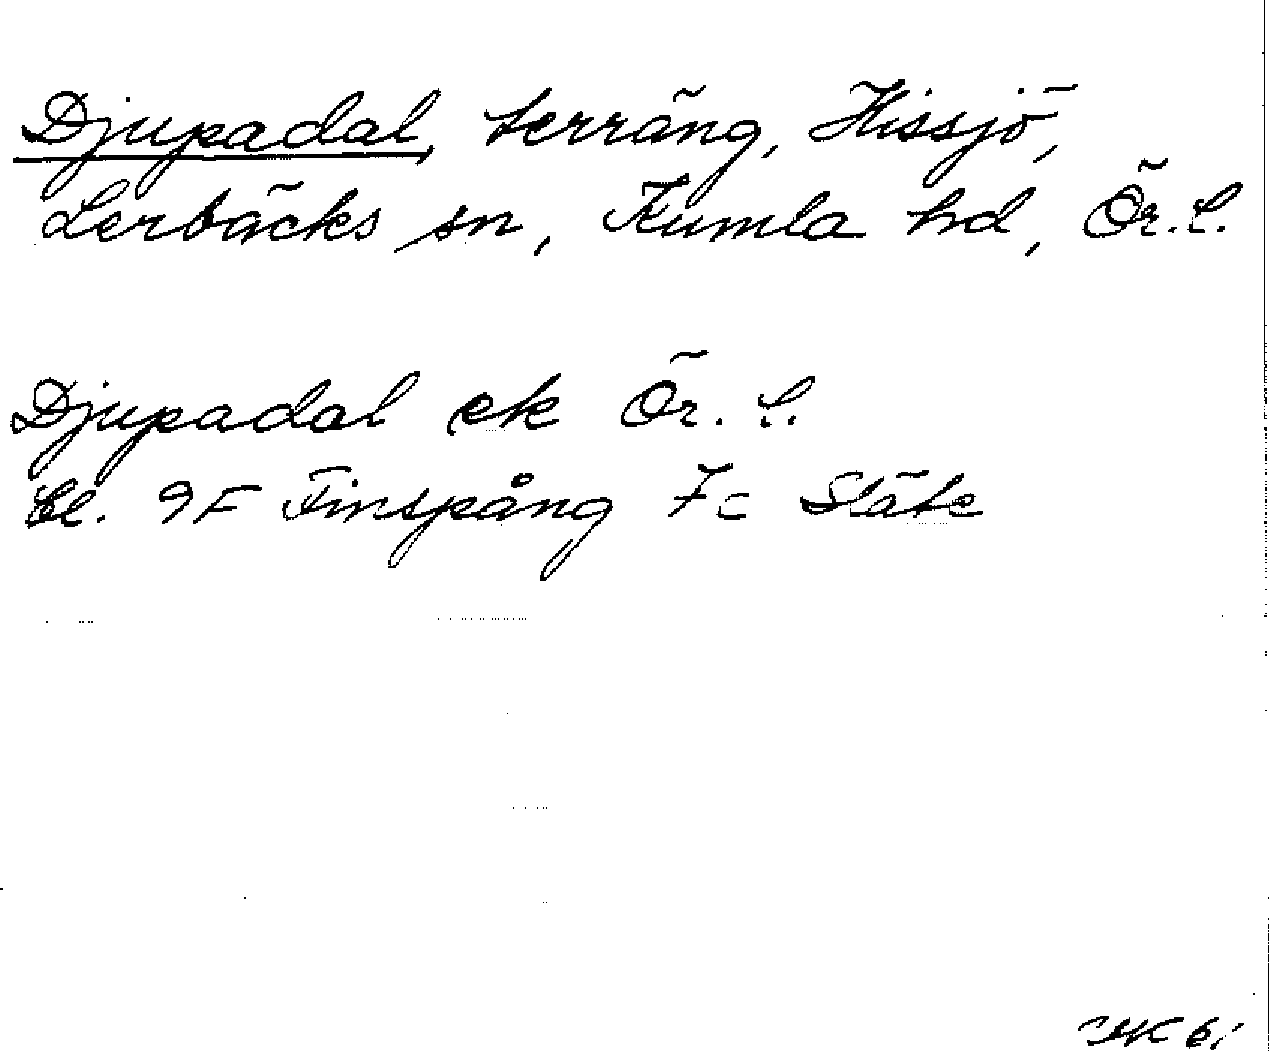 Djupadal, terräng, Hissjö,
Lerbäcks sn, Kumla hd, Ör. L.
Djupadal ek Ör. L.
Bl. 9F Finspång 7c
61